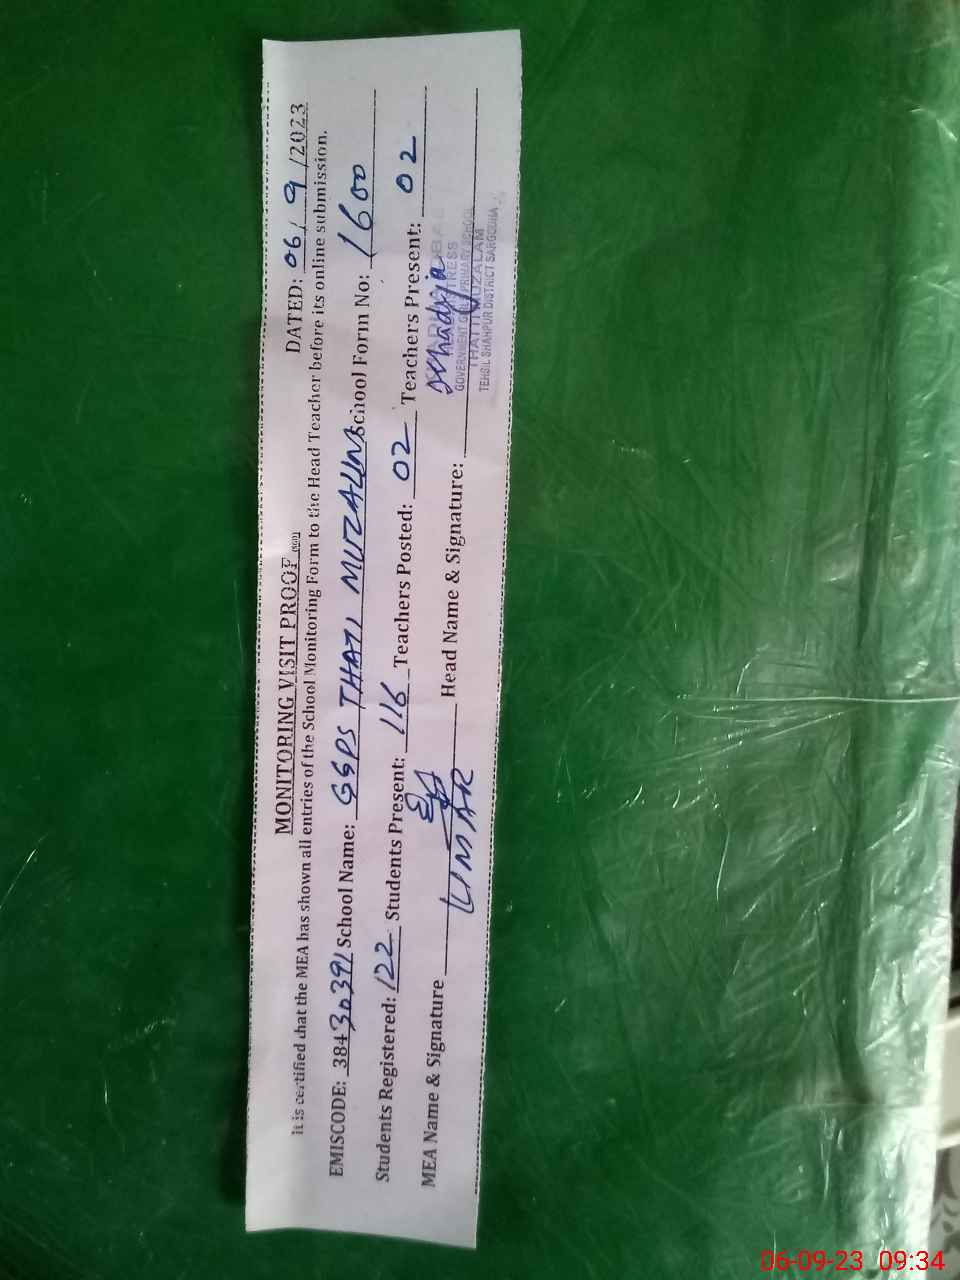 MONITORING VISIT PROOF
DATED: 06/9/2023
It is certified that the MEA has shown all entries of the School Monitoring Form to the Head Teacher before its online submission.
EMISCODE: 38430391 School Name: GGPS THATI MUZALAM School Form No: 1600
Students Registered: 122 Students Present: 116 Teachers Posted: 02 Teachers Present: 02
MEA Name & Signature UMAR Head Name & Signature:
GOVERNMENT GIRLS PRIMARY SCHOOL
THATTI MUZALAM
TEHSIL SHAHPUR DISTRICT SARGODHA
06-09-23 09:34